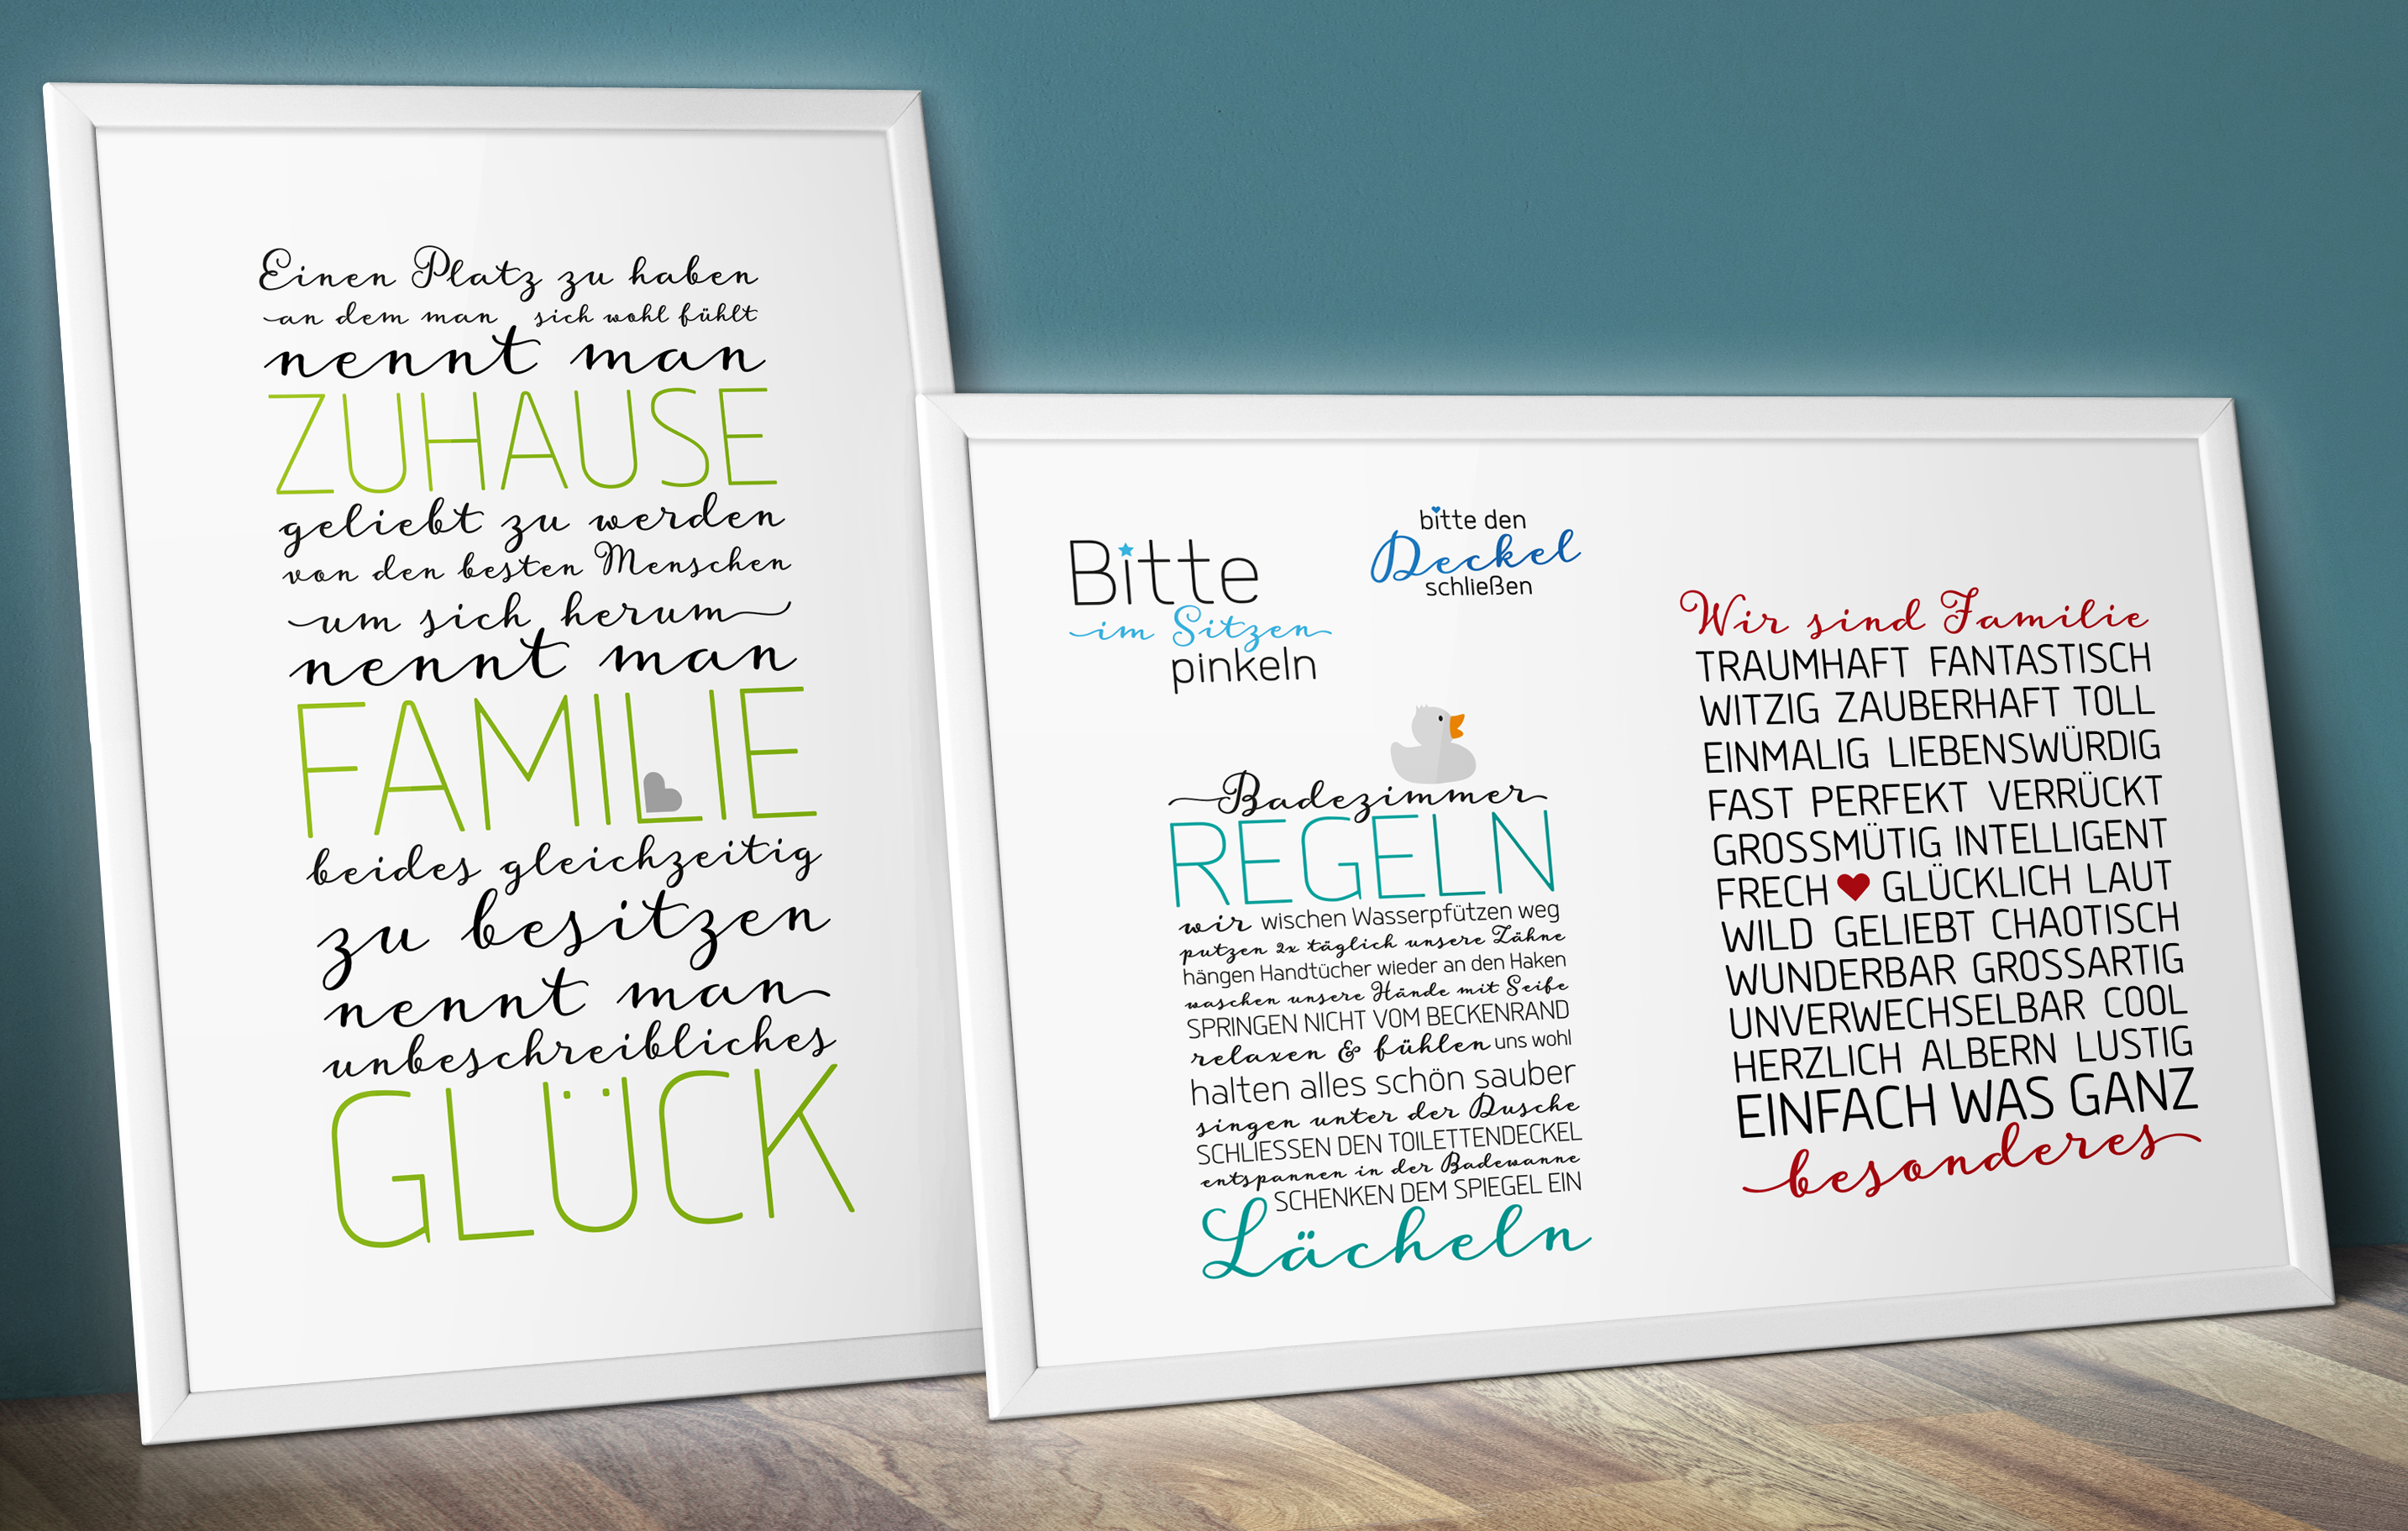 Einen Platz zu haben
an dem man sich wohl fühlt
nennt man
ZUHAUSE
geliebt zu werden
von den besten Menschen
um sich herum
nennt man
FAMILIE
beides gleichzeitig
zu besitzen
nennt man
unbeschreibliches
GLÜCK
Bitte
im Sitzen
pinkeln
bitte den
Deckel
schließen
Badezimmer
REGELN
wir wischen Wasserpfützen weg
putzen 2x täglich unsere Zähne
hängen Handtücher wieder an den Haken
waschen unsere Hände mit Seife
SPRINGEN NICHT VOM BECKENRAND
relaxen & fühlen uns wohl
halten alles schön sauber
singen unter der Dusche
SCHLIESSEN DEN TOILETTENDECKEL
entspannen in der Badewanne
SCHENKEN DEM SPIEGEL EIN
Lächeln
Wir sind Familie
TRAUMHAFT FANTASTISCH
WITZIG ZAUBERHAFT TOLL
EINMALIG LIEBENSWÜRDIG
FAST PERFEKT VERRÜCKT
GROSSMÜTIG INTELLIGENT
FRECH GLÜCKLICH LAUT
WILD GELIEBT CHAOTISCH
WUNDERBAR GROSSARTIG
UNVERWECHSELBAR COOL
HERZLICH ALBERN LUSTIG
EINFACH WAS GANZ
besonderes